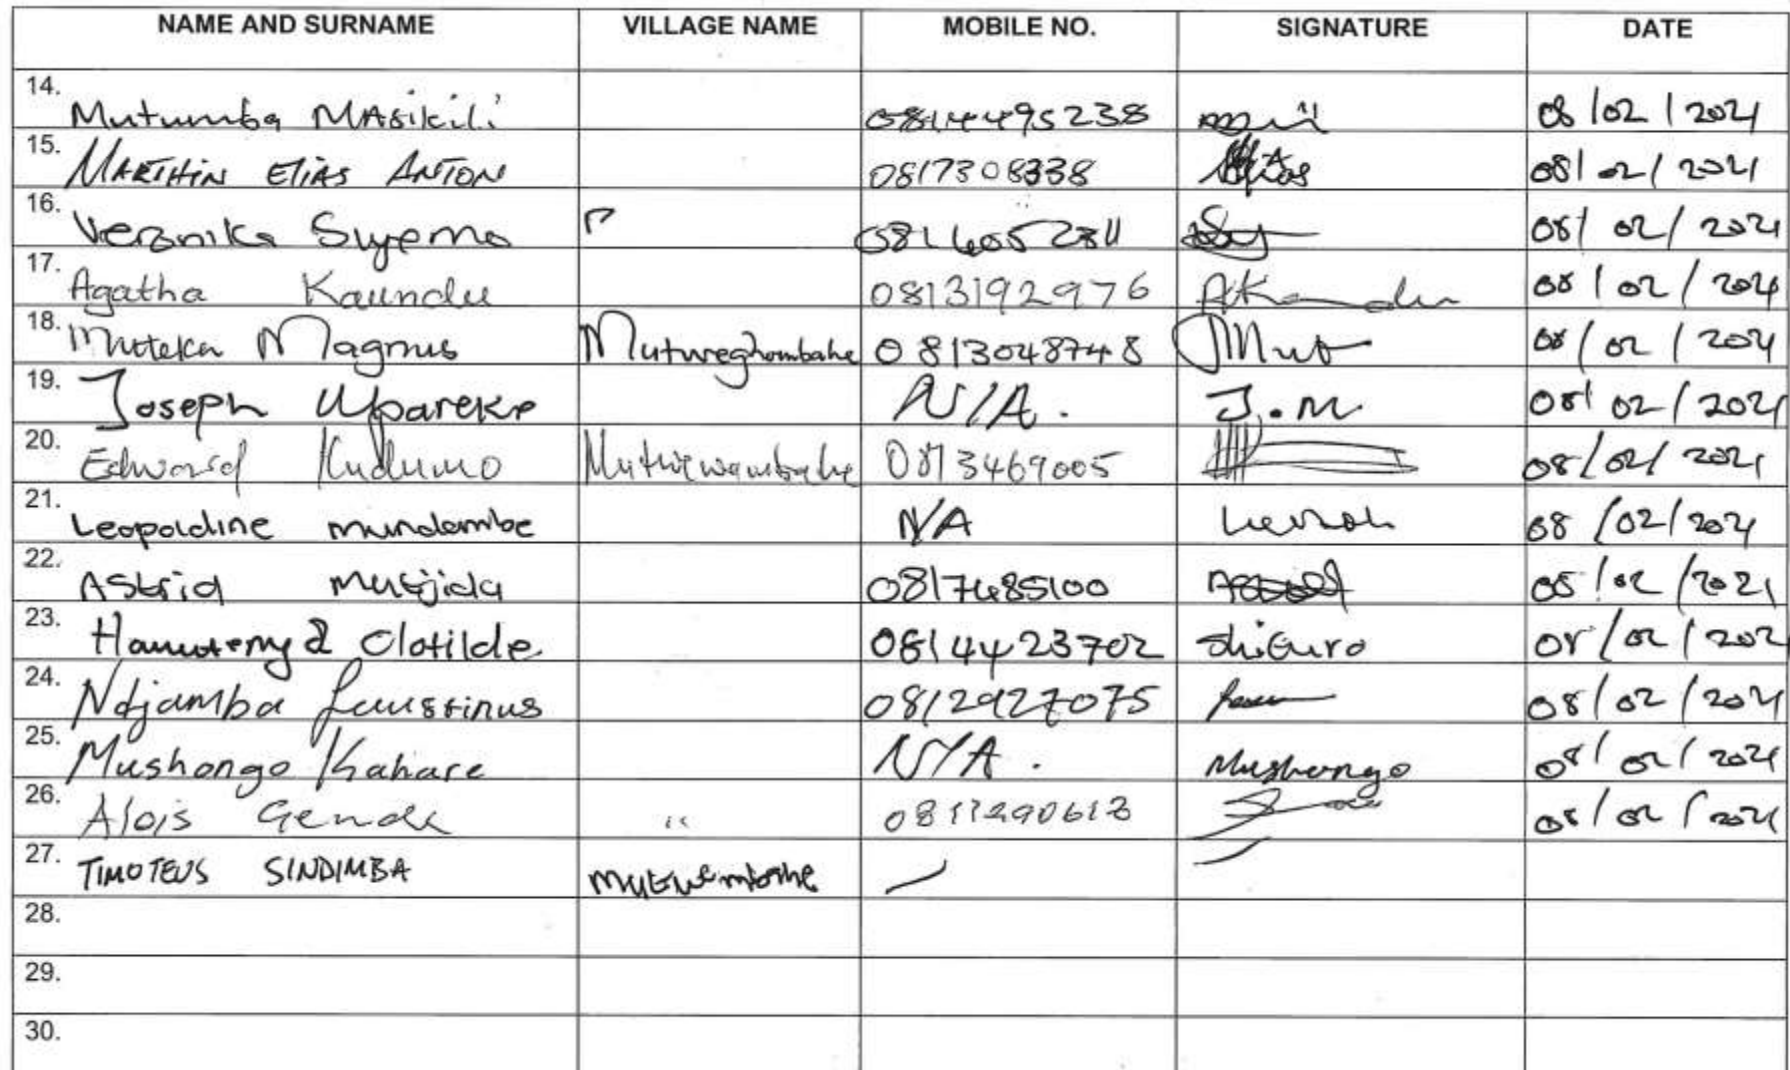 NAME AND SURNAME VILLAGE NAME MOBILE NO. SIGNATURE DATE
14. Mutumba MAsikili 0814495238 08/02/2021
15. MARTHIN ELIAS ANTON 0817308338 08/02/2021
16. Veronika 08/02/2021
17. Agatha Kaundu 0813192976 08/02/2021
18. Muteka Magnus Mutweghombahe 0813048748 Mut 08/02/2021
19. Joseph Mpareke N/A. J.M 08/02/2021
20. Edward Kudumo 0813469005 08/02/2021
21. Leopoldine mundambe N/A 08/02/2021
22. Astrid Mutjida 0817485100 08/02/2021
23. Clotilde 0814423702 Shituro 08/02/2021
24. Ndjamba Faustinus 0812927075 08/02/2021
25. Mushongo Kahare N/A. Mushongo 08/02/2021
26. Alois " 08/02/2021
27. TIMOTEUS SINDIMBA
28.
29.
30.